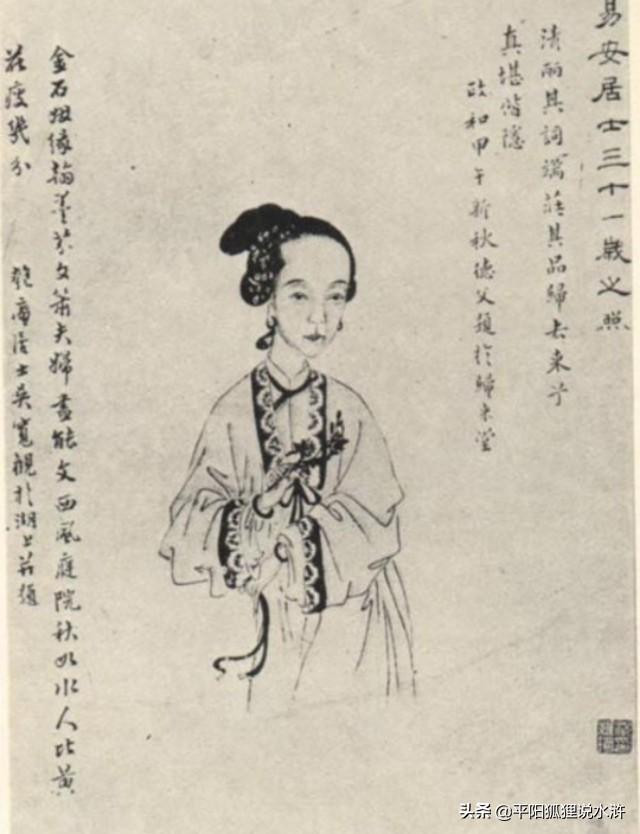 易安居士三十一歲之照
清麗其詞端莊其品歸去來兮
真堪偕隱
政和甲午新秋德父題於歸來堂
金石姻緣翰墨芬文簫夫婦盡能文西風庭院秋如水人比黃
花瘦幾分
匏庵居士吳寬觀於湖上題
头条 @平阳狐狸说水浒